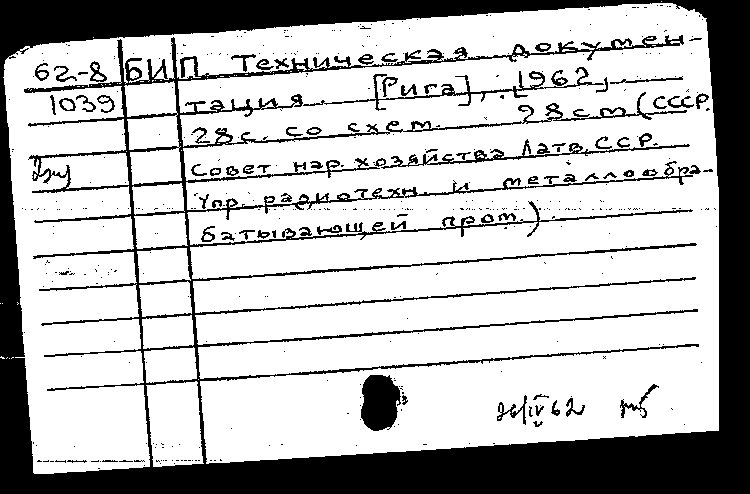 62-8 БИП. Техническая докумен-
1039 тация. [Рига], [1962]
28 с. со схем. 28 см (СССР.
Совет нар. хозяйства Латв. ССР.
Упр. радиотехн. и металлообра-
батывающей пром.)
26/IV 62